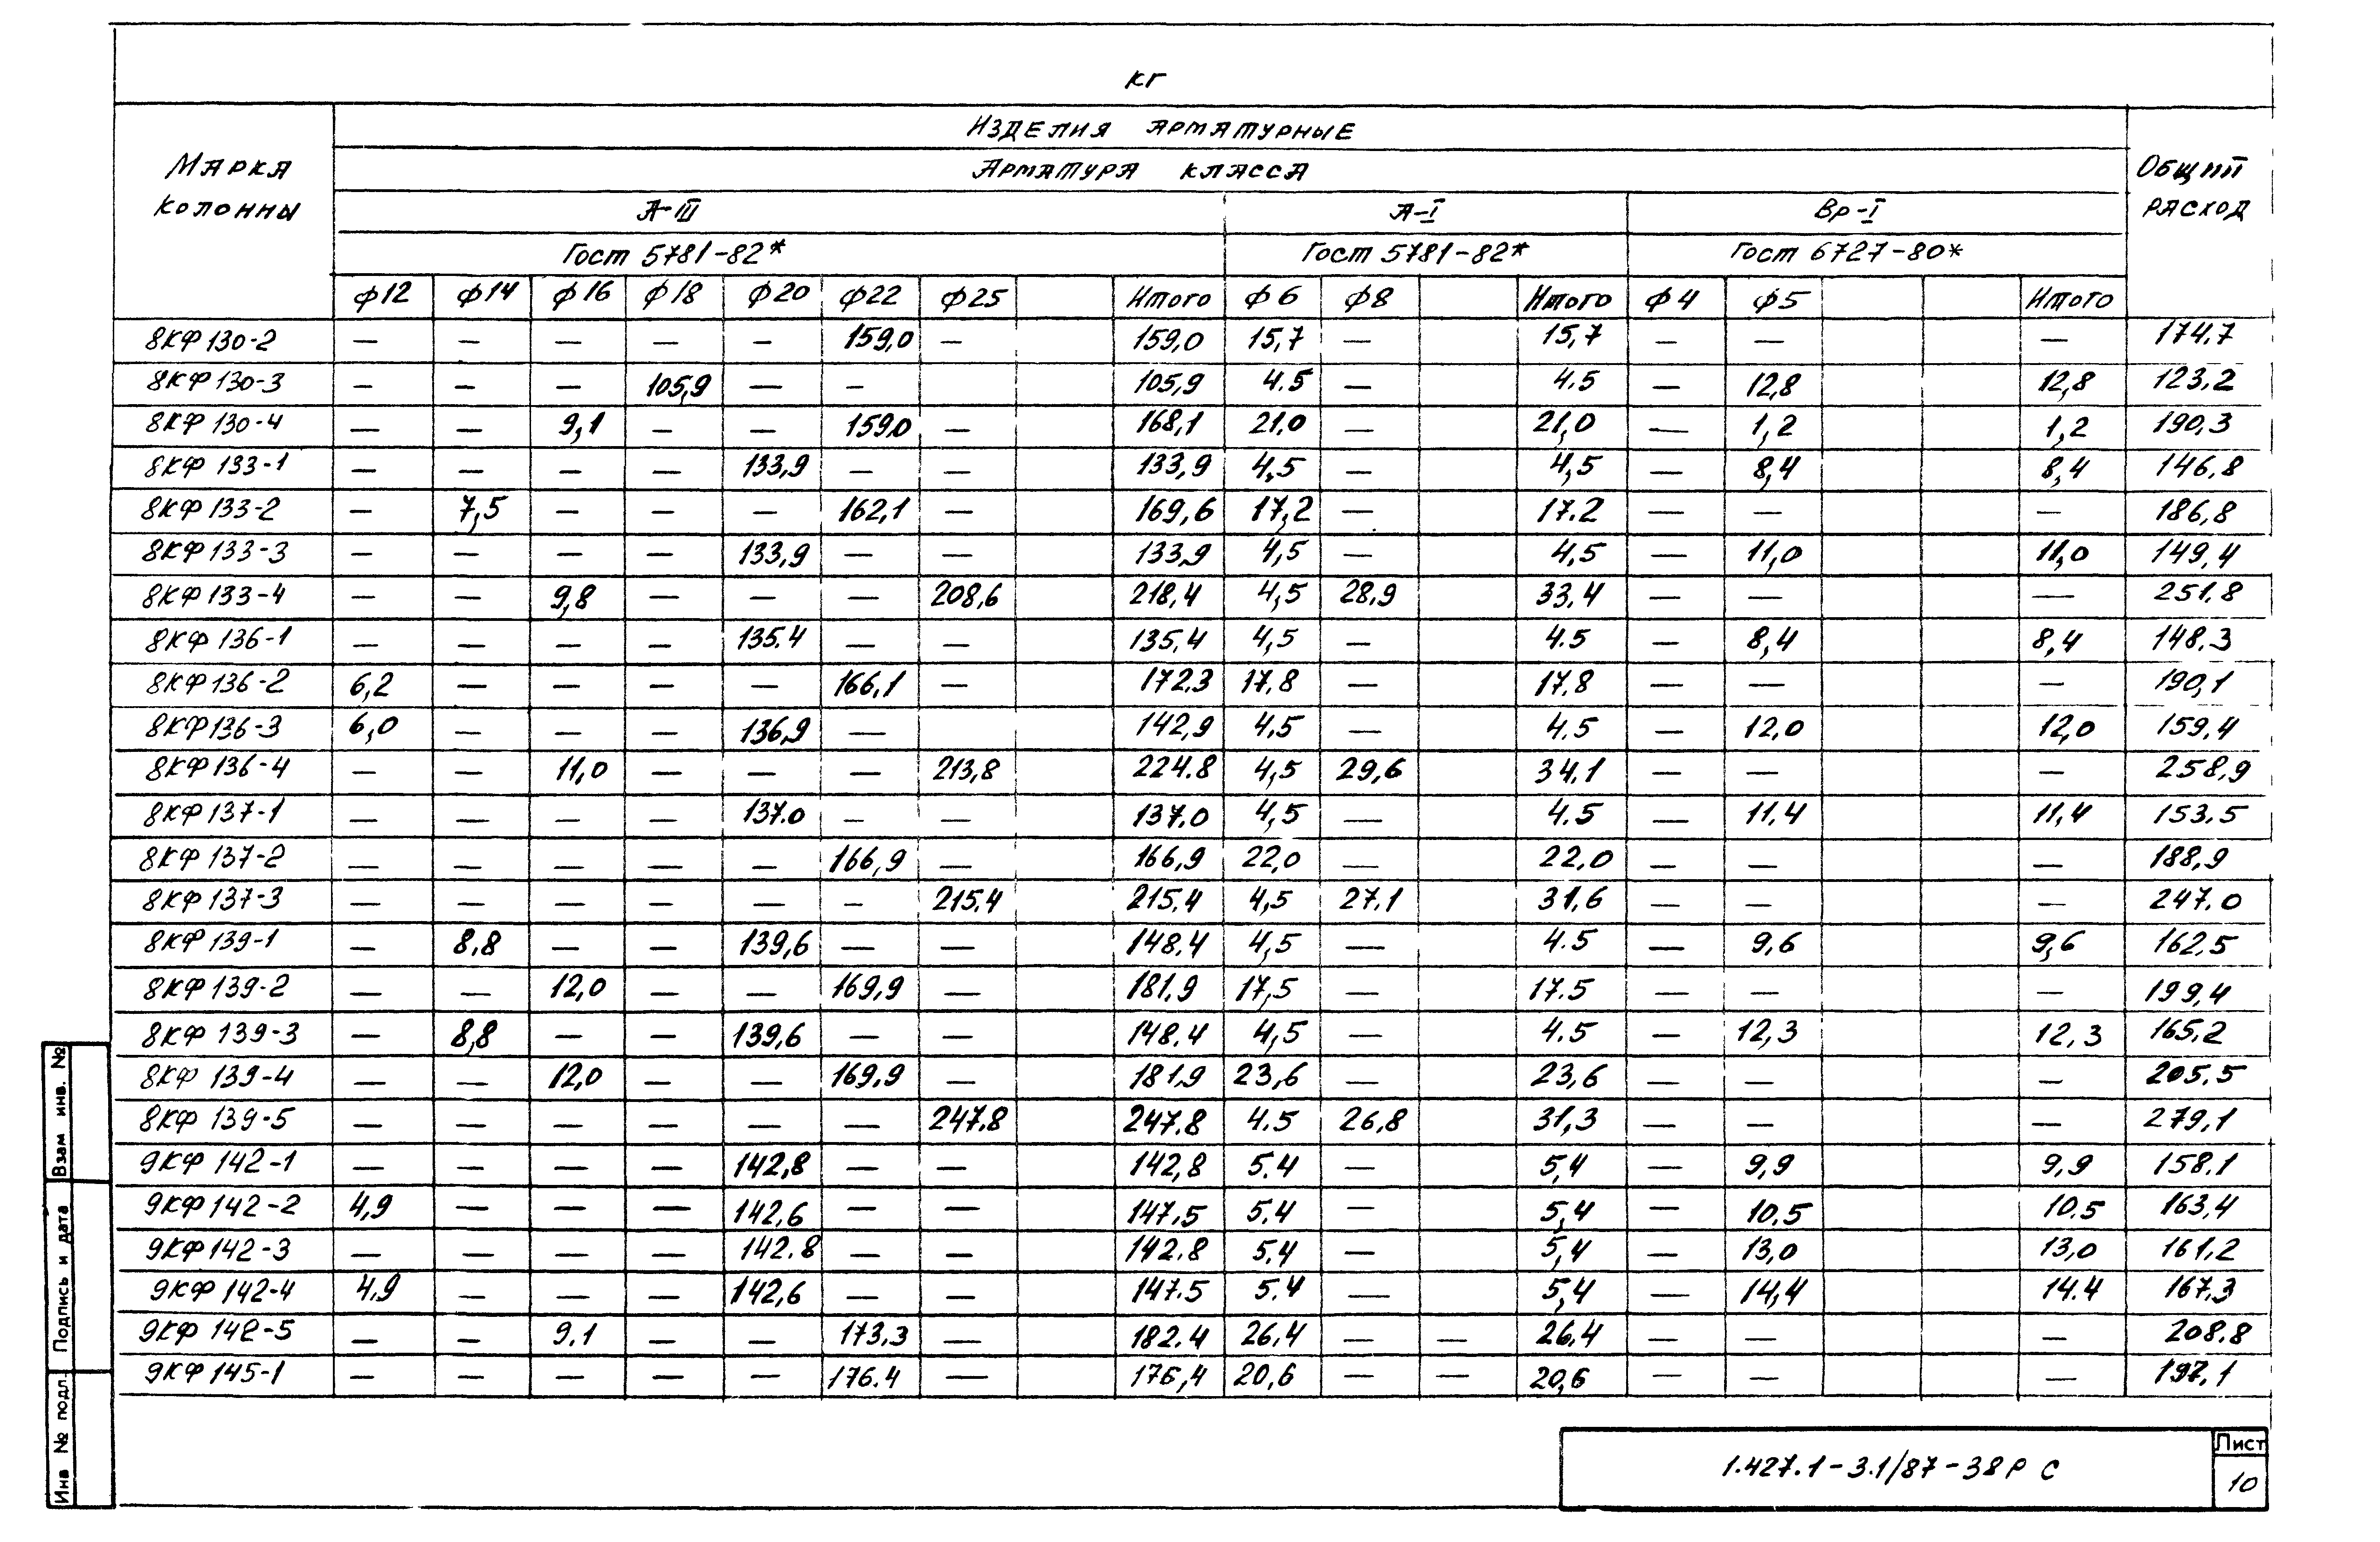 кг
Марка колонны
Изделия арматурные
Арматура класса
А-III А-I Вр-I
Общий расход
Гост 5781-82* Гост 5781-82* Гост 6727-80*
ф12 ф14 ф16 ф18 ф20 ф22 ф25 Итого ф6 ф8 Итого ф4 ф5 Итого
8КФ130-2 — — — — — 159,0 — 159,0 15,7 — 15,7 — — — 174.7
8КФ130-3 — — — 105,9 — — 105,9 4.5 — 4.5 — 12,8 12,8 123.2
8КФ130-4 — — 9,1 — — 159,0 — 168,1 21.0 — 21,0 — 1,2 1,2 190,3
8КФ 133-1 — — — — 133,9 — — 133,9 4,5 — 4,5 — 8,4 8,4 146,8
8КФ133-2 — 7,5 — — — 162,1 — 169,6 17,2 — 17.2 — — — 186,8
8КФ133-3 — — — — 133,9 — — 133,9 4,5 — 4,5 — 11,0 11,0 149,4
8КФ133-4 — — 9,8 — — — 208,6 218,4 4,5 28,9 33,4 — — — 251.8
8КФ136-1 — — — — 135.4 — — 135,4 4,5 — 4.5 — 8,4 8,4 148.3
8КФ136-2 6,2 — — — — 166,1 — 172.3 17.8 — 17.8 — — — 190,1
8КФ136-3 6,0 — — — 136,9 — 142,9 4,5 — 4.5 — 12,0 12,0 159,4
8КФ136-4 — — 11,0 — — — 213,8 224.8 4,5 29,6 34.1 — — — 258,9
8КФ137-1 — — — — 137.0 — — 137.0 4,5 — 4.5 — 11.4 11,4 153.5
8КФ137-2 — — — — — 166,9 — 166,9 22,0 — 22,0 — — — 188,9
8КФ137-3 — — — — — — 215.4 215.4 4,5 27.1 31.6 — — — 247.0
8КФ139-1 — 8.8 — — 139,6 — — 148.4 4,5 — 4.5 — 9,6 9,6 162.5
8КФ139-2 — — 12,0 — — 169,9 — 181.9 17,5 — 17.5 — — — 199,4
8КФ 139-3 — 8,8 — — 139,6 — — 148.4 4,5 — 4.5 — 12,3 12,3 165.2
8КФ 139-4 — — 12,0 — — 169,9 — 181,9 23,6 — 23,6 — — — 205.5
8КФ 139-5 — — — — — — 247.8 247.8 4.5 26,8 31,3 — — — 279,1
9КФ 142-1 — — — — 142,8 — — 142,8 5.4 — 5,4 — 9,9 9,9 158.1
9КФ142-2 4,9 — — — 142,6 — — 147.5 5.4 — 5,4 — 10.5 10.5 163,4
9КФ142-3 — — — — 142.8 — — 142.8 5.4 — 5,4 — 13,0 13,0 161.2
9КФ142-4 4,9 — — — 142,6 — — 147.5 5.4 — 5,4 — 14,4 14.4 167.3
9КФ 142-5 — — 9.1 — — 173.3 — 182.4 26,4 — — 26,4 — — — 208.8
9КФ145-1 — — — — — 176.4 — 176,4 20,6 — — 20,6 — — — 197.1
Взам инв. №
Подпись и дата
Инв № подл.
1.427.1-3.1/87-38Р С
Лист
10